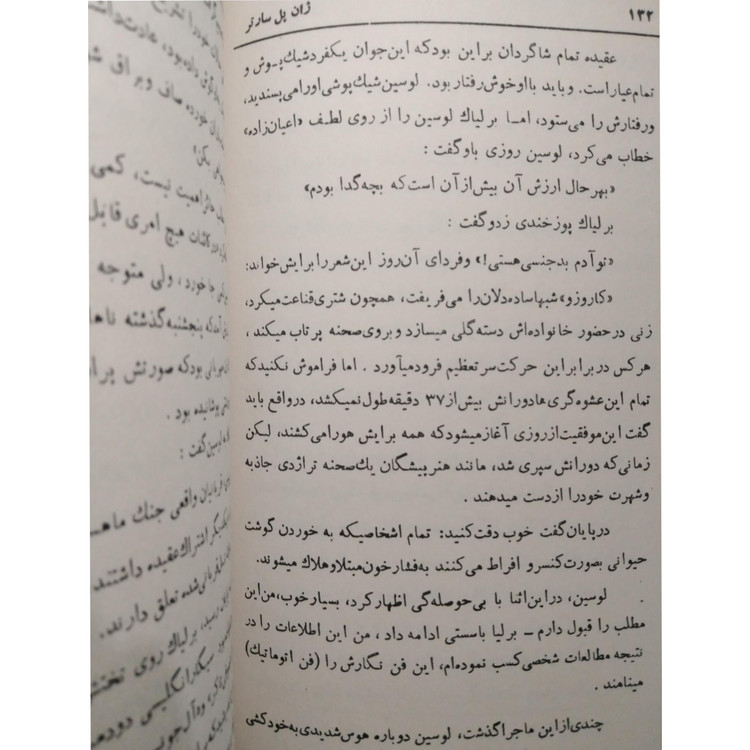 ۱۳۲
ژان پل سارتر
عقیده تمام شاگردان بر این بود که این جوان یکفرد شیك پوش و
تمام عیار است. و باید با او خوش رفتار بود. لوسین شیك پوشی او را می پسندید،
ورفتارش را می ستود، اما بر لیاك لوسین را از روی لطف «اعیان زاده»
خطاب می کرد، لوسین روزی باو گفت :
«بهر حال ارزش آن بیش از آن است که بچه گدا بودم»
بر لیاك پوزخندی زد و گفت :
«تو آدم بد جنسی هستی!» و فردای آن روز این شعر را برایش خواند:
«کاروزو» شبها ساده دلان را می فریفت، همچون شتری قناعت میکرد،
زنی در حضور خانواده اش دسته گلی میسازد و بروی صحنه پرتاب میکند،
هر کس در برابر این حرکت سر تعظیم فرود میآورد . اما فراموش نکنید که
تمام این عشوه گری ها دورانش بیش از ۳۷ دقیقه طول نمیکشد، در واقع باید
گفت این موفقیت از روزی آغاز میشود که همه برایش هورا می کشند، لیکن
زمانی که دورانش سپری شد، مانند هنرپیشگان یك صحنه تراژدی جاذبه
وشهرت خود را از دست میدهند .
در پایان گفت خوب دقت کنید: تمام اشخاصیکه به خوردن گوشت
حیوانی بصورت کنسرو افراط می کنند به فشار خون مبتلا و هلاك میشوند.
لوسین، در این اثنا با بی حوصله گی اظهار کرد، بسیار خوب، من این
مطلب را قبول دارم – بر لیا باسستی ادامه داد ، من این اطلاعات را در
نتیجه مطالعات شخصی کسب نموده ام، این فن نگارش را (فن اتوماتیك)
مینامند .
چندی از این ماجرا گذشت، لوسین دوباره هوس شدیدی به خود کشی
اهمیت نیست، کمی
هیچ امری قابل
جا خورد، ولی متوجه
که پنجشنبه گذشته
بود که صورتش
پوشانیده بود .
لوسین گفت :
واقعی جنك
اشتراك عقیده داشتند
تعلق دارند.
بر لیاك روی
سیگار انگلیسی